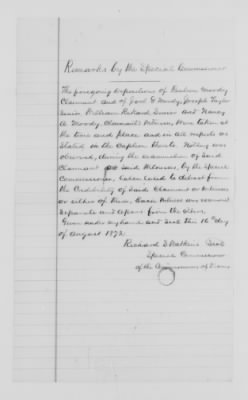 Remarks by the Special Commissioner
The foregoing depositions of Moody
Claimant and of Joel G Moody, Joseph Taylor
Senior, William Richard Senior and Nancy
A Moody, Claimant's witnesses, were taken at
the time and place and in all respects as
stated in the Caption thereto. Nothing was
observed, during the examination of Said
Claimant or Said Witnesses, by the Special
Commissioner, Calculated to detract from
the Credibility of Said Claimant or Witnesses
or either of them, Each Witness was examined
Separate and apart from the others.
Given under my hand and Seal this 16th day
of August 1872
Richard S Watkins Seal
Special Commissioner
of the Commissioners of Claims